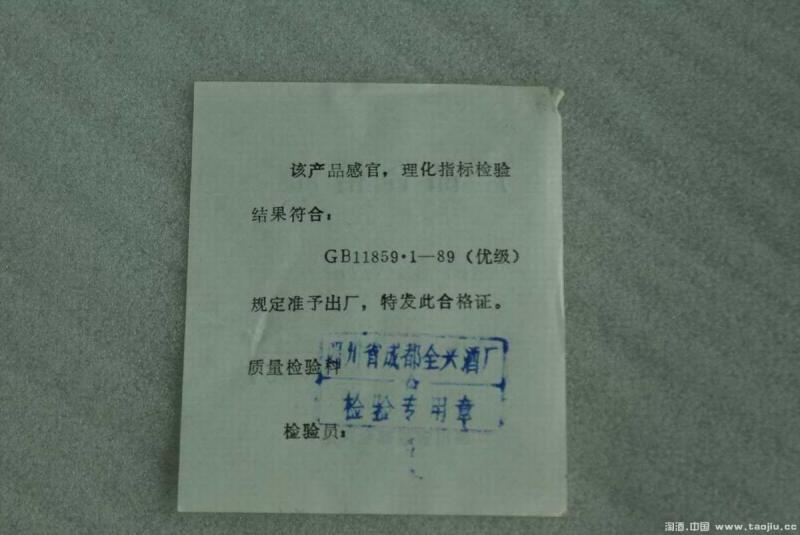 该产品感官，理化指标检验
结果符合：
GB11859·1—89（优级）
规定准予出厂，特发此合格证。
质量检验科
四川省成都全兴酒厂
检验专用章
检验员：
淘酒.中国 www.taojiu.cc